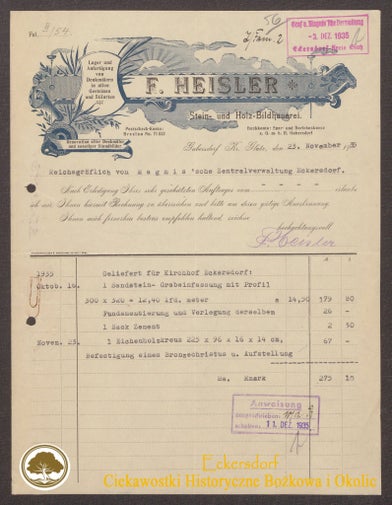 Fol. II/54.
56
Gräfl. v. Magnis'sche Verwaltung
-3. DEZ. 1935
Eckersdorf Kreis Glatz
Lager und
Anfertigung
von
Denkmälern
in allen
Gesteinen
und Stilarten
F. HEISLER
Stein- und Holz-Bildhauerei.
Postscheck-Konto:
Breslau No.
Bankkonto: Spar- und Darlehnskasse
e. G. m. b. H. Gabersdorf
Renovation alter Denkmäler
und sonstiger Kunstbilder
Gabersdorf Kr. Glatz, den 23. November 1935
Reichsgräflich von Magnis'sche Zentralverwaltung Eckersdorf.
Nach Erledigung Ihres sehr geschätzten Auftrages vom - - - - erlaube
ich mir, Ihnen hiermit Rechnung zu überreichen und bitte um deren gütige Anerkennung.
Ihnen mich fernerhin bestens empfohlen haltend, zeichne
hochachtungsvoll
F. Heisler
1935 Geliefert für Kirchhof Eckersdorf:
Oktob. 16. 1 Sandstein- Grabeinfassung mit Profil
300 x 320 - 12,40 lfd. meter a 14,50 179 80
Fundamentierung und Verlegung derselben 26 -
1 Sack Zement 2 50
Novem. 23. 1 Eichenholzkreuz 225 x 96 x 16 x 14 cm, 67 -
Befestigung eines Bronzechristus u. Aufstellung
Sa. Rmark 275 10
Anweisung
ausgeschrieben:
erhalten: 11. DEZ. 1935
Eckersdorf
Ciekawostki Historyczne Bożkowa i Okolic